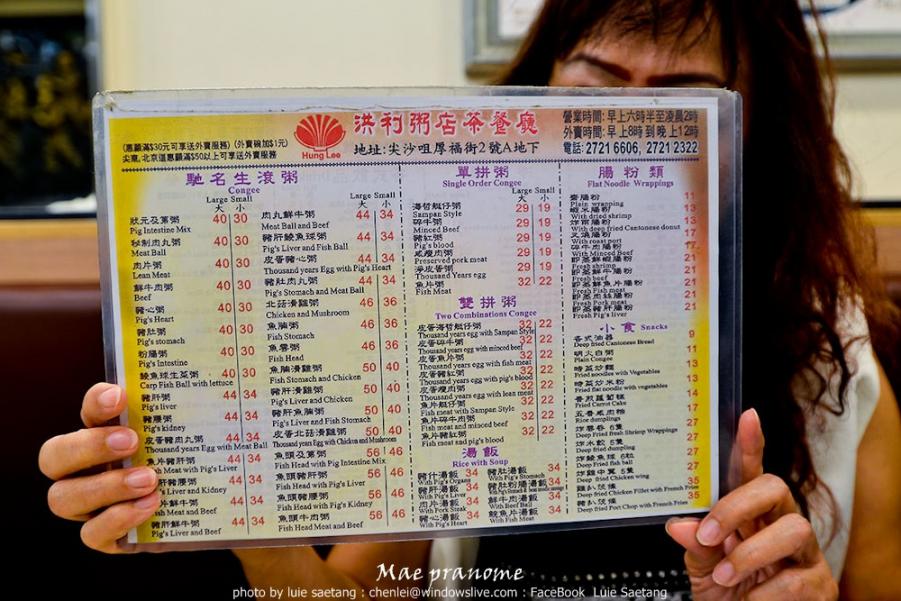 (惠顧滿$30元可享送外賣服務) (外賣碗加$1元)
尖東, 北京道惠顧滿$50以上可享送外賣服務
Hung Lee
洪利粥店茶餐廳
地址:尖沙咀厚福街2號A地下
營業時間: 早上六時半至凌晨2時
外賣時間: 早上8時到晚上12時
電話: 2721 6606, 2721 2322
馳名生滾粥
Congee
Large Small
大 小
狀元及第粥 40 30
Pig Intestine Mix
秘制肉丸粥 40 30
Meat Ball
肉片粥 40 30
Lean Meat
鮮牛肉粥 40 30
Beef
豬心粥 40 30
Pig's Heart
豬肚粥 40 30
Pig's stomach
粉腸粥 40 30
Pig's Intestine
鯪魚球生菜粥 40 30
Carp Fish Ball with lettuce
豬肝粥 44 34
Pig's liver
豬腰粥 44 34
Pig's kidney
皮蛋豬肉丸粥 44 34
Thousand years Egg with Meat Ball
魚片豬肝粥 44 34
Fish Meat with Pig's Liver
豬肝豬腰粥 44 34
Pig's Liver and Kidney
魚片鮮牛粥 44 34
Fish Meat and Beef
豬肝鮮牛粥 44 34
Pig's Liver and Beef
Large Small
大 小
肉丸鮮牛粥 44 34
Meat Ball and Beef
豬肝鯪魚球粥 44 34
Pig's Liver and Fish Ball
皮蛋豬心粥 44 34
Thousand years Egg with Pig's Heart
豬肚肉丸粥 44 34
Pig's Stomach and Meat Ball
北菇滑雞粥 46 36
Chicken and Mushroom
魚腩粥 46 36
Fish Stomach
魚雲粥 46 36
Fish Head
魚腩滑雞粥 50 40
Fish Stomach and Chicken
豬肝滑雞粥 50 40
Pig's Liver and Chicken
豬肝魚腩粥 50 40
Pig's Liver and Fish Stomach
皮蛋北菇滑雞粥 50 40
Thousand years Egg with Chicken and Mushroom
魚頭及第粥 56 46
Fish Head with Pig Intestine Mix
魚頭豬肝粥 56 46
Fish Head with Pig's Liver
魚頭豬腰粥 56 46
Fish Head with Pig's Kidney
魚頭牛肉粥 56 46
Fish Head Meat and Beef
單拼粥
Single Order Congee
Large Small
大 小
海皆艇仔粥 29 19
Sampan Style
碎牛粥 29 19
Minced Beef
豬紅粥 29 19
Pig's blood
咸瘦肉粥 29 19
Preserved pork meat
淨皮蛋粥 29 19
Thousand Years egg
魚片粥 32 22
Fish Meat
雙拼粥
Two Combinations Congee
皮蛋海皆艇仔粥 32 22
Thousand years egg with Sampan Style
皮蛋碎牛粥 32 22
Thousand years egg with minced beef
皮蛋魚片粥 32 22
Thousand years egg with fish meat
皮蛋豬紅粥 32 22
Thousand years egg with pig's blood
皮蛋瘦肉粥 32 22
Thousand years egg with lean meat
魚片艇仔粥 32 22
Fish meat with Sampan Style
魚片碎牛粥 32 22
Fish meat and minced beef
魚片豬紅粥 32 22
Fish meat and pig's blood
湯飯
Rice with Soup
豬什湯飯 34
With Pig's Organs
豬肝湯飯 34
With Pig's Liver
肉片湯飯 34
With Pork Steak
豬心湯飯 34
With Pig's Heart
豬肚湯飯 34
With Pig's Stomach
豬肚粉腸湯飯 34
鮮牛肉湯飯 34
With Beef Ball
鯇魚片湯飯 34
With Fish Meat
腸粉類
Flat Noodle Wrappings
齋腸粉 11
Plain wrapping
蝦米腸粉 13
With dried shrimp
炸兩腸粉 17
With deep fried Cantonese donut
叉燒腸粉 17
With roast port
碎牛肉腸粉 17
With Minced Beef
即蒸鮮蝦腸粉 21
Fresh shrimp
即蒸鮮牛腸粉 21
Fresh beef
即蒸鮮魚片腸粉 21
Fresh Fish meat
即蒸肉絲腸粉 21
Fresh Pork meat
即蒸豬肝腸粉 21
Fresh Pig's liver
小食 Snacks
各式油器 9
Deep fried Cantonese Bread
明火白粥 11
Plain Congee
豉蒸炒麵 13
Fried noodles with Vegetables
豉蒸炒米粉 13
Fried flat noodle with vegetables
香煎蘿蔔糕 14
Fried Carrot Cake
五香咸肉糭 17
Rice dumplings
炸蝦卷 6隻 27
Deep Fried Fresh Shrimp Wrappings
炸水餃 8隻 27
Deep fried dumpling
炸鯪魚球 6粒 27
Deep fried fish ball
炸雞中翼 5隻 27
Deep fried Chicken wing
雞扒炸條 35
Deep fried Chicken Fillet with French Fries
豬扒炸條 35
Deep fried Port Chop with French Fries
Mae pranome
photo by luie saetang : chenlei@windowslive.com : FaceBook Luie Saetang